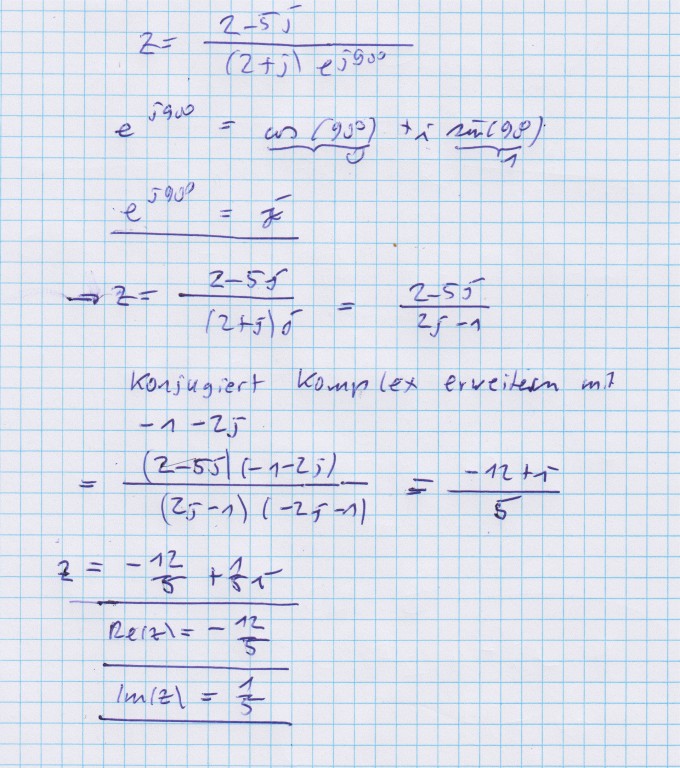 z = (2-5j) / ((2+j) e^{j90°})
e^{j90°} = cos(90°) + j sin(90°)
0 1
e^{j90°} = j
→ z = (2-5j) / ((2+j)j) = (2-5j) / (2j-1)
Konjugiert Komplex erweitern mit
-1-2j
= ((2-5j)(-1-2j)) / ((2j-1)(-2j-1)) = (-12+j) / 5
z = -12/5 + 1/5 j
Re(z) = -12/5
Im(z) = 1/5